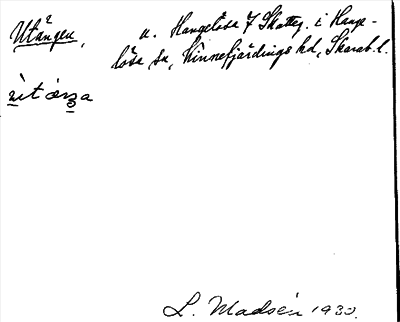 Utången, u. Hangelösa 7 Skatteg. i Hange-
lösa sn, Kinnefjärdings hd, Skarab. l.
L. Madsén 1930.